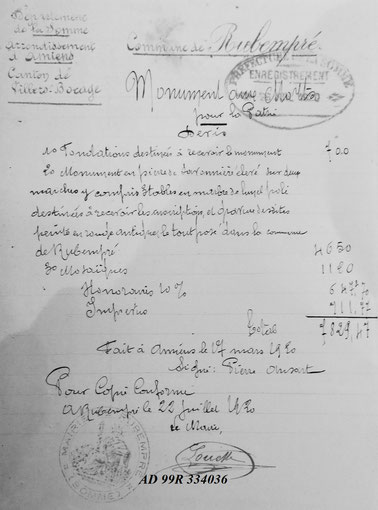 Département
de la Somme
arrondissement
d'Amiens
Canton de
Villers-Bocage
Commune de Rubempré
PREFECTURE DE LA SOMME
ENREGISTREMENT
Monument aux Morts
pour la Patrie
Devis
1o Fondations destinées à recevoir le monument 700
2o Monument en pierre de élevé sur deux
marches y compris tables en marbre de poli
destinées à recevoir les inscriptions, et
peinte en antique, le tout posé dans la commune
de Rubempré 4650
3o Mosaïques 1120
Honoraires 10%
Imprévus 711,77
Total 7829,47
Fait à Amiens le 17 mars 1920
Signé: Pierre Ansart
Pour Copie Conforme
A Rubempré le 22 Juillet 1920
Le Maire,
AD 99R 334036